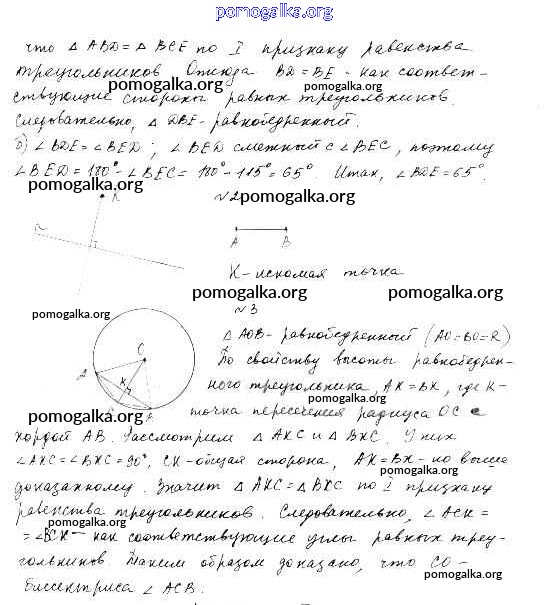 pomogalka.org
что △ ABD = △ BCE по I признаку равенства
треугольников. Откуда BD = BE - как соответ-
pomogalka.org pomogalka.org
ствующие стороны равных треугольников.
Следовательно, △ DBE - равнобедренный.
pomogalka.org
б) ∠BDE = ∠BED; ∠BED смежный с ∠BEC, поэтому
∠BED = 180° - ∠BEC = 180° - 115° = 65°. Итак, ∠BDE = 65°.
pomogalka.org №2 pomogalka.org
A B
K - искомая точка
pomogalka.org pomogalka.org
pomogalka.org
№3
△ AOB - равнобедренный (AO = BO = R)
По свойству высоты равнобедрен-
ного треугольника, AK = BK, где K -
pomogalka.org
pomogalka.org
точка пересечения радиуса OC с
хордой AB. Рассмотрим △ AKC и △ BKC. У них
∠AKC = ∠BKC = 90°, CK - общая сторона, AK = BK - по выше
pomogalka.org
доказанному. Значит △ AKC = △ BKC по I признаку
равенства треугольников. Следовательно, ∠ACK =
pomogalka.org
= ∠BCK - как соответствующие углы равных треу-
гольников. Таким образом доказано, что CO -
pomogalka.org pomogalka.org
биссектриса ∠ACB.